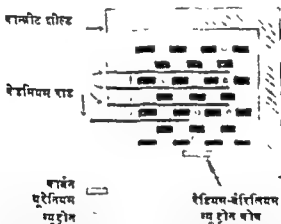 कान्क्रीट शील्ड
कैडमियम राड
कार्बन
यूरेनियम
न्यूट्रोन
रेडियम-बेरिलियम
न्यूट्रोन स्रोत